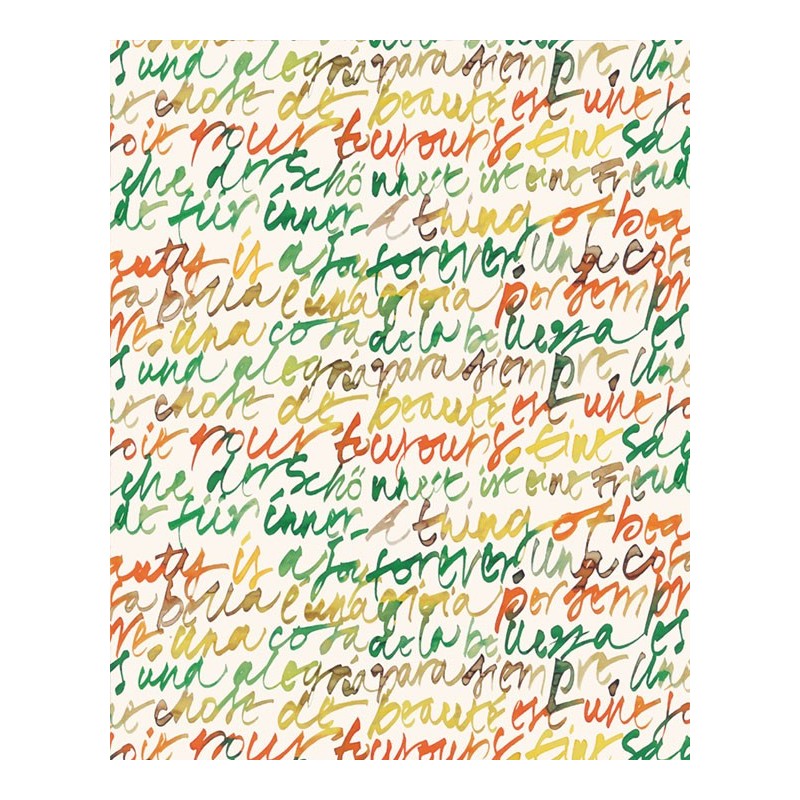 s una alegria para siempre. Une
chose de beauté est une jo
oie pour toujours. Eine Sac
che der Schönheit ist eine Freud
de für inner. A thing of bea
auty is a joy forever. Una cosa
sa bella é una gioia per sempr
re. Una cosa de la belleza es
s una alegria para siempre. Une
chose de beauté est une jo
oie pour toujours. Eine Sac
che der Schönheit ist eine Freud
de für inner. A thing of bea
auty is a joy forever. Una cosa
sa bella é una gioia per sempr
re. Una cosa de la belleza es
s una alegria para siempre. Une
chose de beauté est une jo
oie pour toujours. Eine Sac